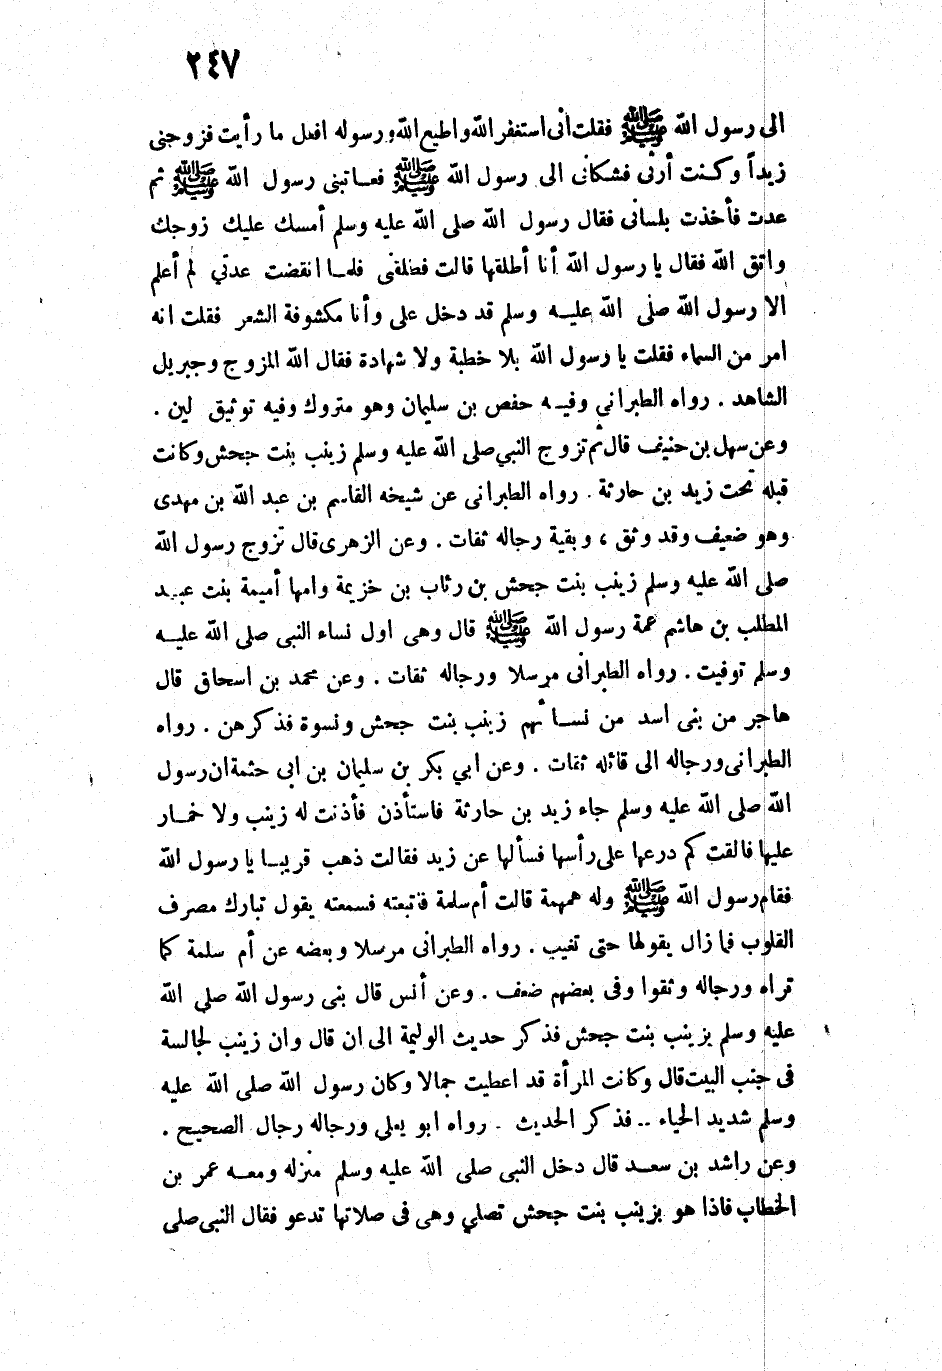 ٢٤٧
الى رسول الله ﷺ فقلت انى استغفر الله واطيع الله ورسوله افعل ما رأيت فزوجنى
زيداً وكنت أرثى فشكانى الى رسول الله ﷺ فعاتبنى رسول الله ﷺ ثم
عدت فأخذت بلسانى فقال رسول الله صلى الله عليه وسلم أمسك عليك زوجك
واتق الله فقال يا رسول الله أنا أطلقها قالت فطلقنى فلما انقضت عدتي لم أعلم
الا رسول الله صلى الله عليه وسلم قد دخل على وأنا مكشوفة الشعر فقلت انه
امر من السماء فقلت يا رسول الله بلا خطبة ولا شهادة فقال الله المزوج وجبريل
الشاهد . رواه الطبراني وفيه حفص بن سليمان وهو متروك وفيه توثيق لين .
وعن سهل بن حنيف قال ثم تزوج النبي صلى الله عليه وسلم زينب بنت جحش وكانت
قبله تحت زيد بن حارثة . رواه الطبرانى عن شيخه القاسم بن عبد الله بن مهدى
وهو ضعيف وقد وثق ، وبقية رجاله ثقات . وعن الزهرى قال تزوج رسول الله
صلى الله عليه وسلم زينب بنت جحش بن رئاب بن خزيمة وامها أميمة بنت عبد
المطلب بن هاشم عمة رسول الله ﷺ قال وهى اول نساء النبي صلى الله عليه
وسلم توفيت . رواه الطبرانى مرسلا ورجاله ثقات . وعن محمد بن اسحاق قال
هاجر من بنى اسد من نسائهم زينب بنت جحش ونسوة فذكرهن . رواه
الطبرانى ورجاله الى قائله ثقات . وعن ابي بكر بن سليمان بن ابى حثمة ان رسول
الله صلى الله عليه وسلم جاء زيد بن حارثة فاستأذن فأذنت له زينب ولا خمار
عليها فالقت كم درعها على رأسها فسألها عن زيد فقالت ذهب قريبا يا رسول الله
فقام رسول الله ﷺ وله همهمة قالت أم سلمة فاتبعته فسمعته يقول تبارك مصرف
القلوب فما زال يقولها حتى تغيب . رواه الطبرانى مرسلا وبعضه عن أم سلمة كما
تراه ورجاله وثقوا وفى بعضهم ضعف . وعن أنس قال بنى رسول الله صلى الله
عليه وسلم بزينب بنت جحش فذكر حديث الوليمة الى ان قال وان زينب لجالسة
فى جنب البيت قال وكانت المرأة قد اعطيت جمالا وكان رسول الله صلى الله عليه
وسلم شديد الحياء .. فذكر الحديث . رواه ابو يعلى ورجاله رجال الصحيح .
وعن راشد بن سعد قال دخل النبي صلى الله عليه وسلم منزله ومعه عمر بن
الخطاب فاذا هو بزينب بنت جحش تصلي وهى فى صلاتها تدعو فقال النبى صلى